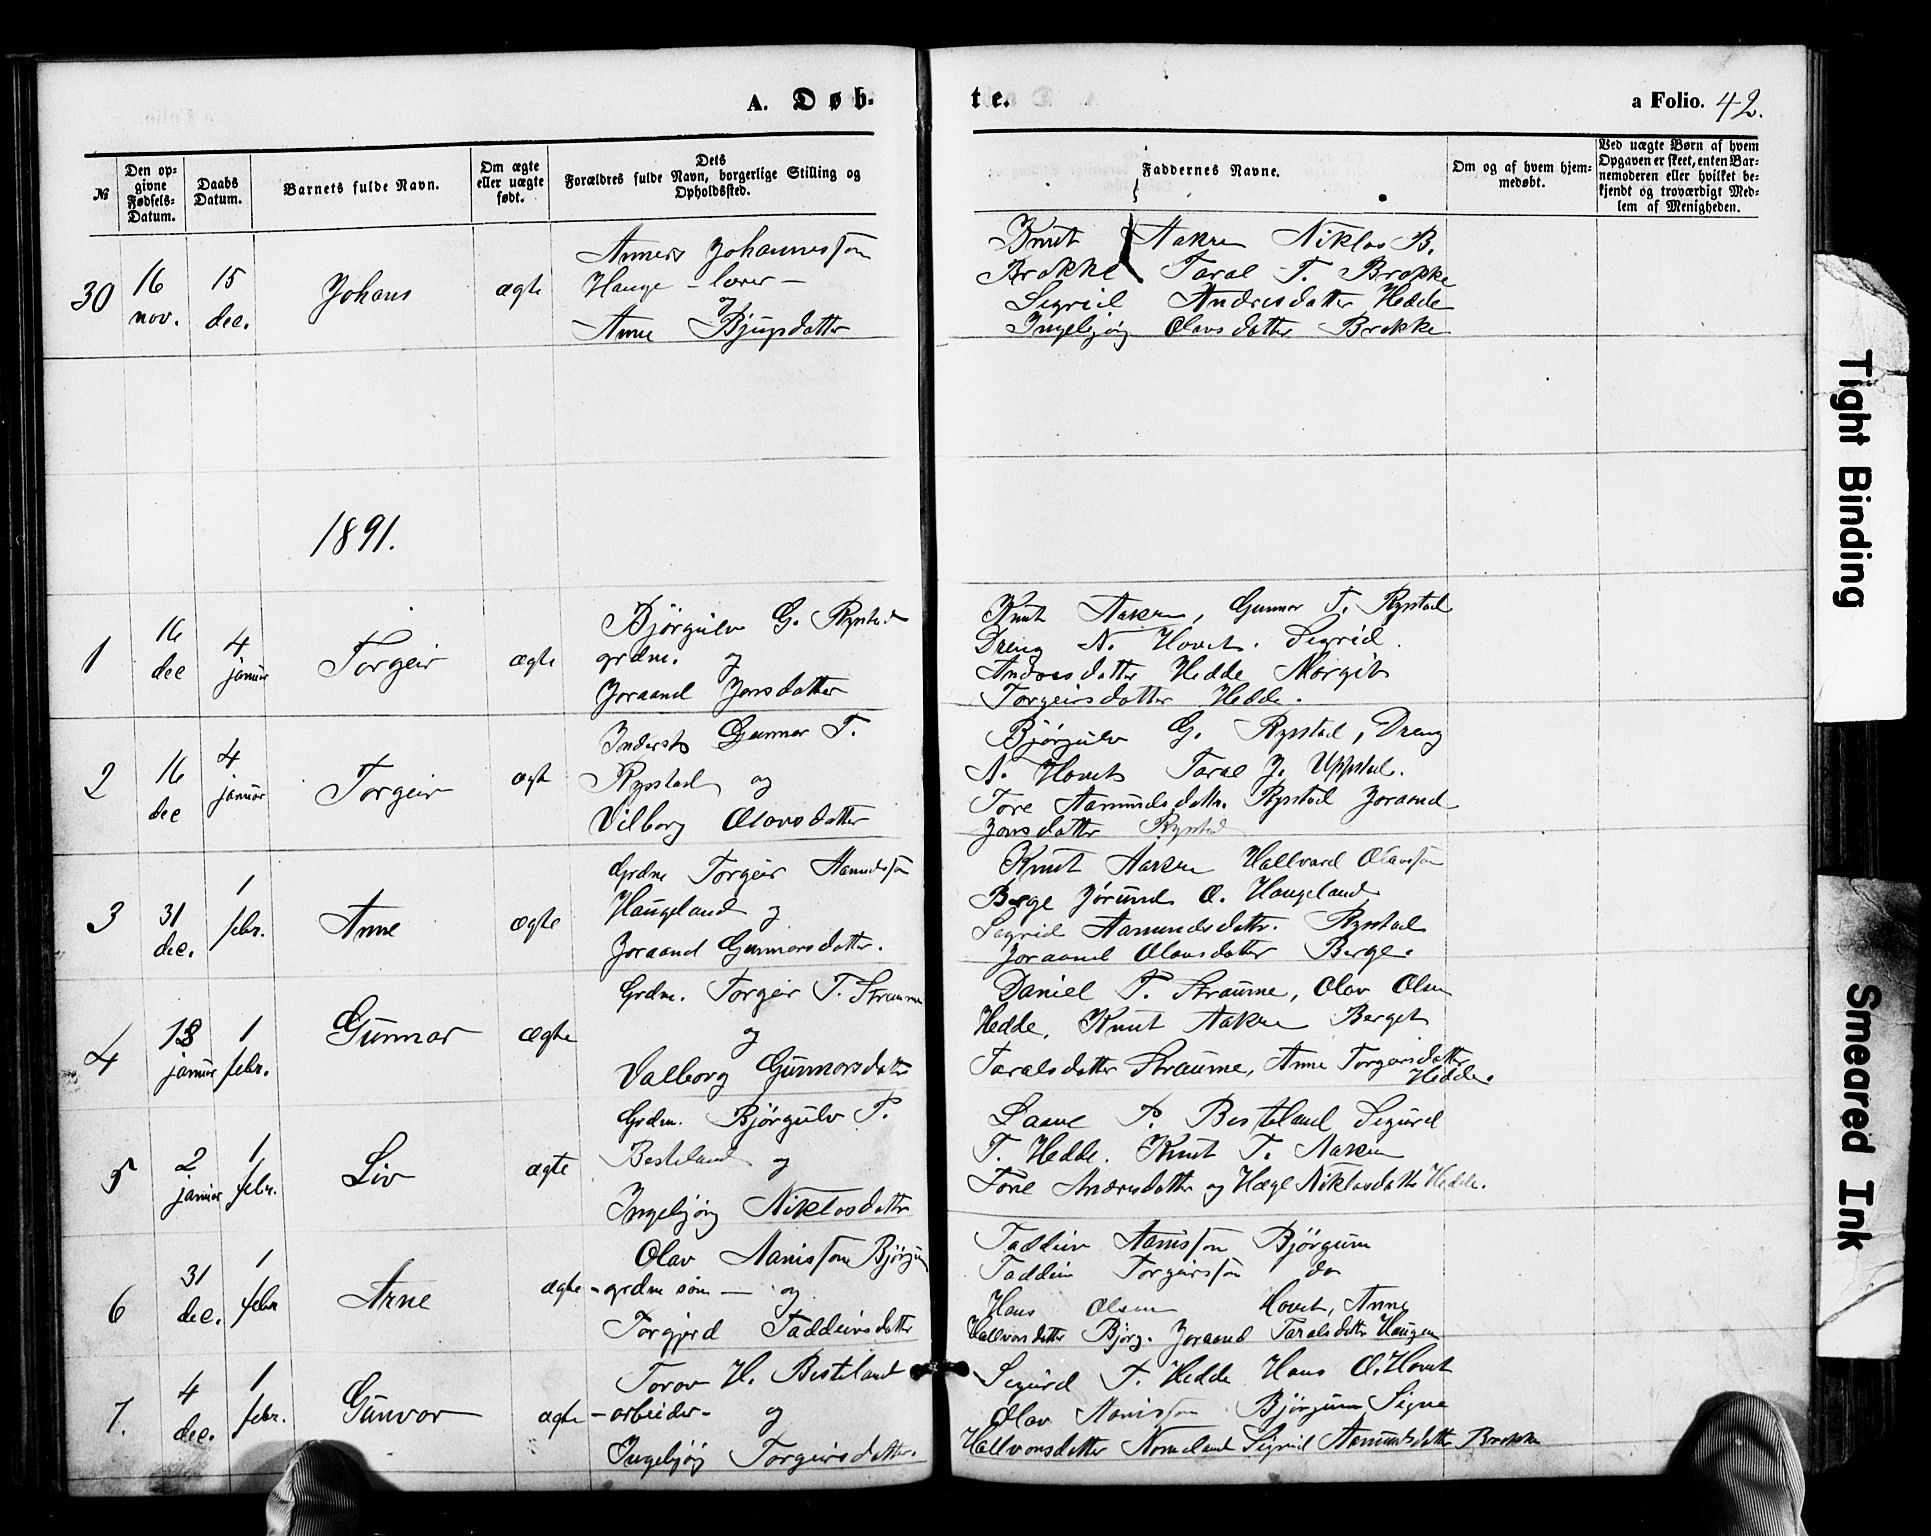 A. Døb-
te.
a Folio. 42.
№
Den op-
givne
Fødsels-
Datum.
Daabs
Datum.
Barnets fulde Navn.
Om ægte
eller uægte
født.
Dets
Forældres fulde Navn, borgerlige Stilling og
Opholdssted.
Faddernes Navne.
Om og af hvem hjem-
medøbt.
Ved uægte Børn af hvem
Opgaven er skeet, enten Bar-
nemoderen eller hvilket be-
kjendt og troværdigt Med-
lem af Menigheden.
30
16
nov.
15
dec.
Johans
ægte
Anners Johannesson
Hauge - lærer -
og
Anne Bjugsdatter
Knut Aakre Niklos B.
Brokke Taral T. Brokke
Sigrid Andresdatter Hedde
Ingebjørg Olavsdatter Brokke
1891.
1
16
dec
4
januar
Torgeir
ægte
Bjørgulv G. Rystad
grdm. og
Joraand Jonsdatter
Knut Aakre, Gunnar T. Rystad
Dreng N. Hovet. Sigrid
Andresdatter Hedde Margit
Torgeirsdatter Hedde.
2
16
dec
4
januar
Torgeir
ægte
Inderst Gunnar T.
Rystad og
Vilborg Olavsdatter
Bjørgulv G. Rystad, Dreng
N. Hovet Taral J. Uppstad.
Tore Aamundsdattr. Rystad Joraand
Jonsdatter Rystad
3
31
dec.
1
febr.
Anne
ægte
Grdm Torgeir Aamundsson
Haugeland og
Joraand Gunnarsdatter.
Knut Aakre Hallvard Olavsson
Berge Jørund O. Haugeland
Sigrid Aamundsdattr. Rystad
Joraand Olavsdatter Berge.
4
18
januar
1
febr.
Gunnar
ægte
Grdm. Torgeir T. Straume
og
Valborg Gunnarsdatter
Daniel T. Straume, Olav Olsen
Hedde, Knut Aakre Berget
Taralsdatter Straume, Anne Torgeirsdatter
Hedde.
5
2
januar
1
febr.
Liv
ægte
Grdm. Bjørgulv P.
Besteland og
Ingebjørg Niklosdatter
Saave P. Besteland Sigurd
T. Hedde. Knut T. Aakre
Tone Andresdatter og Hæge Niklosdatter Hedde.
6
31
dec.
1
febr
Arne
ægte
Olav Aanisson Bjørgum
- grdm søn - og
Torgjerd Taddeivsdatter
Taddeiv Aanisson Bjørgum
Taddeiv Torgeirsson do
Hans Olsen Hovet, Anne
Hallvorsdatter Bjørg. Joraand Taralsdatter Haugen
7.
4
dec.
1
febr.
Gunvor
ægte
Torov H. Besteland
- arbeider - og
Ingebjørg Torgeirsdatter.
Sigurd T. Hedde Hans O. Hovet
Olav Aanisson Bjørgum Signe
Hallvorsdatter Nomeland Sigrid Aamundsdatter Brokke
Tight Binding
Smeared Ink